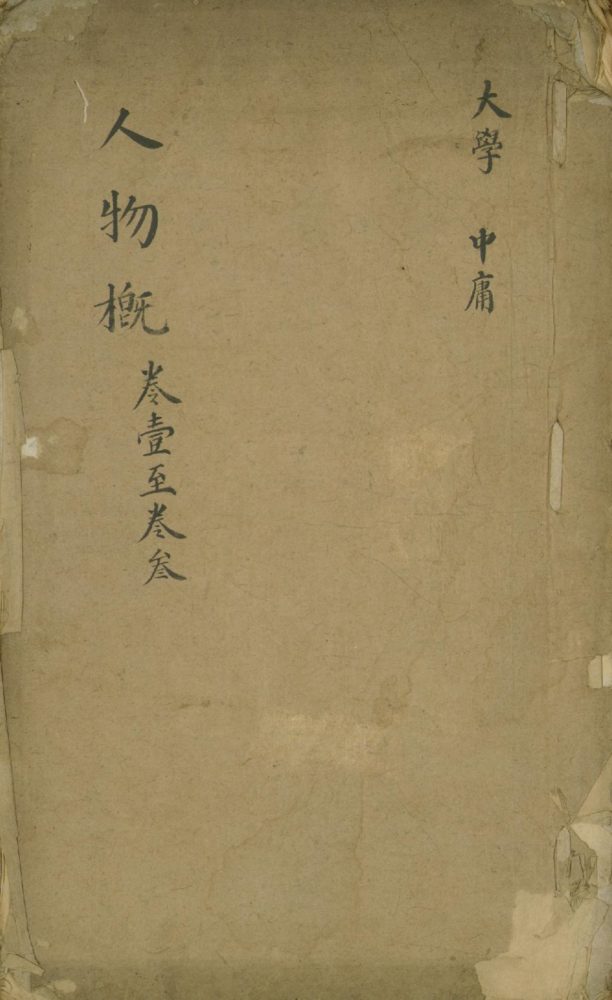 大學 中庸
人物概
卷壹至卷叁